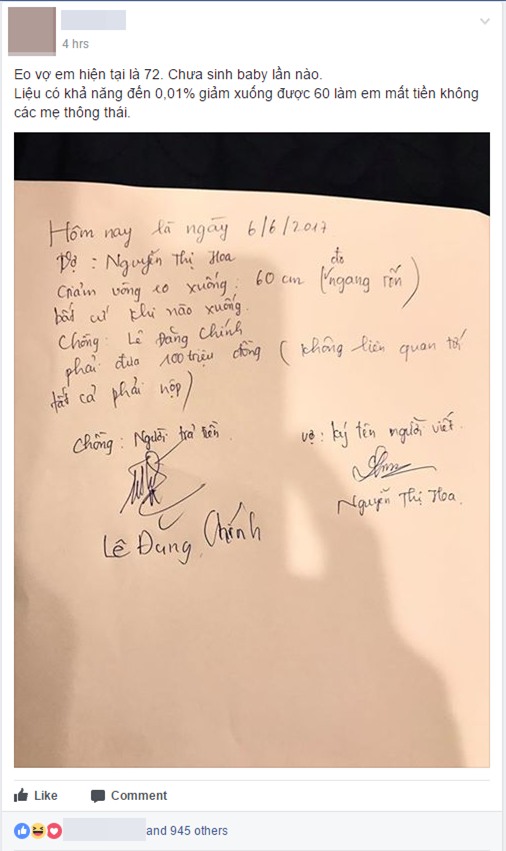 4 hrs
Eo vợ em hiện tại là 72. Chưa sinh baby lần nào.
Liệu có khả năng đến 0,01% giảm xuống được 60 làm em mất tiền không
các mẹ thông thái.
Hôm nay là ngày 6/6/2017.
Vợ : Nguyễn Thị Hoa
đo
Giảm vòng eo xuống : 60 cm (ngang rốn)
bất cứ khi nào xuống.
Chồng: Lê Đăng Chính
phải đưa 100 triệu đồng ( không liên quan tới
tất cả phải nộp)
Chồng : Người trả tiền.
vợ : ký tên người viết.
Nguyễn Thị Hoa.
Lê Đang Chính
Like
Comment
and 945 others